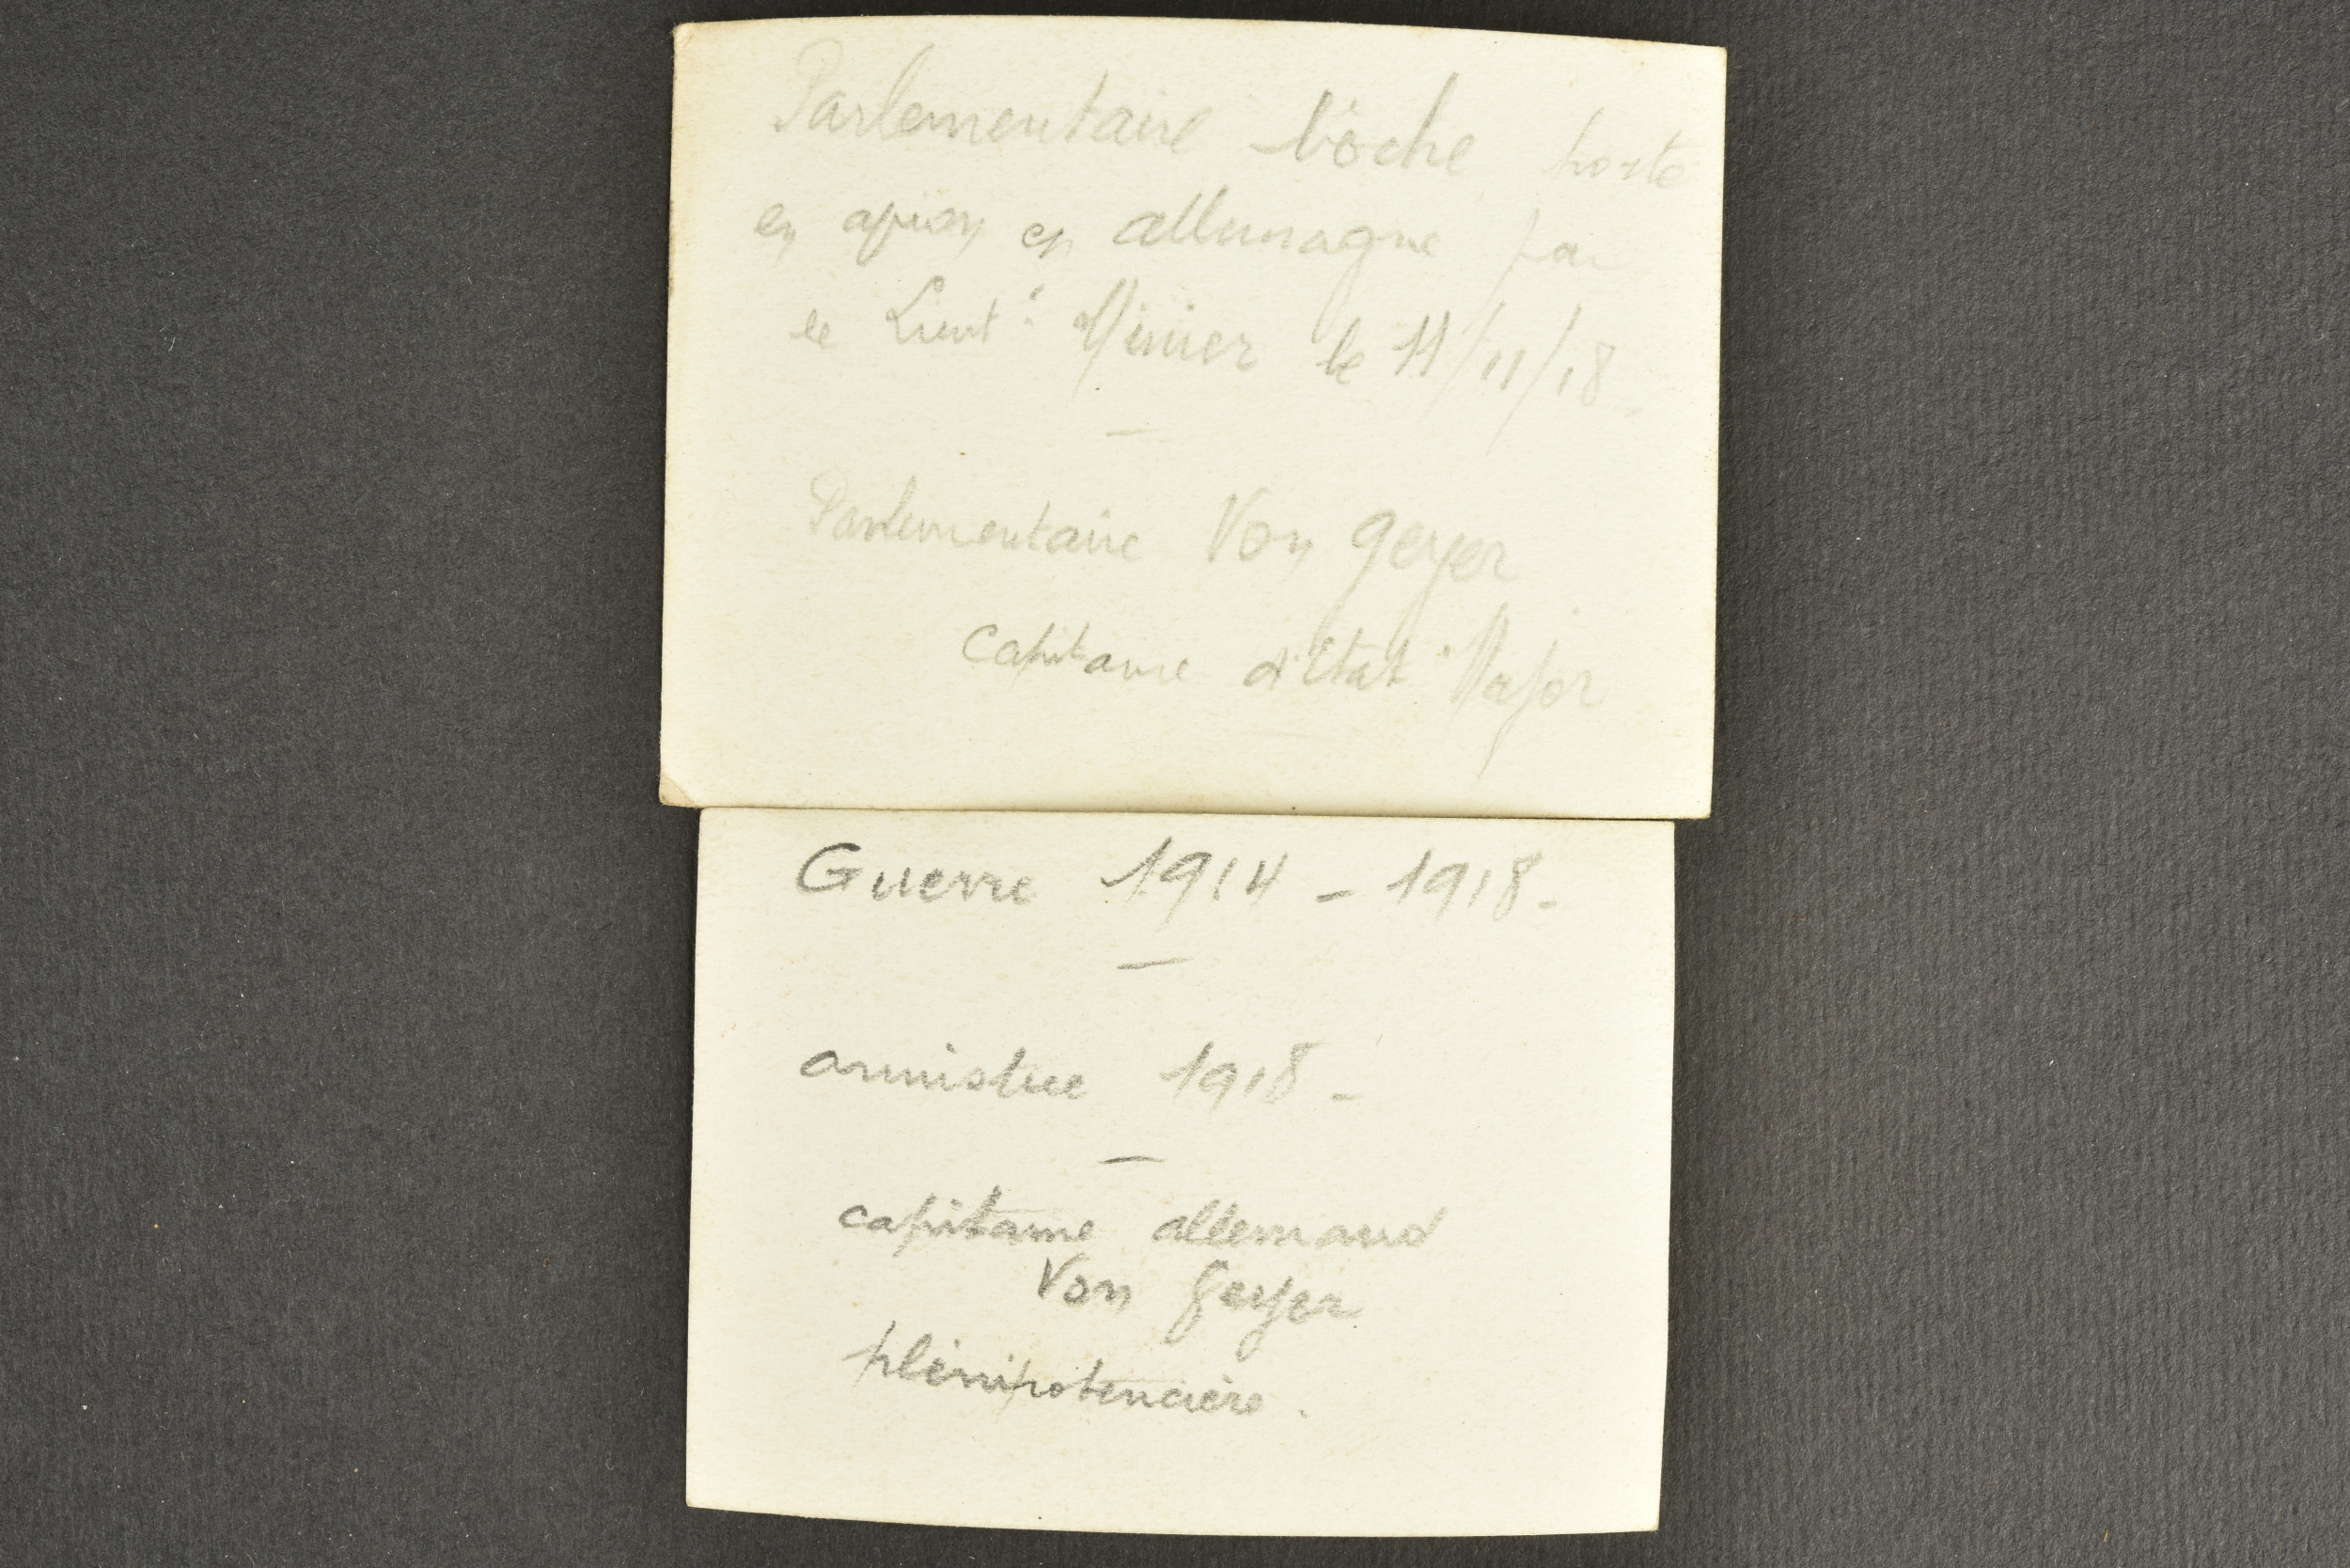 Parlementaire bôche porté
en avion en allemagne par
le Lieut! Minier le 11/11/18.
Parlementaire Von geyer
capitaine d'Etat Major
Guerre 1914 - 1918.
armistice 1918 -
capitaine allemand
Von Geyer
plénipotencière.